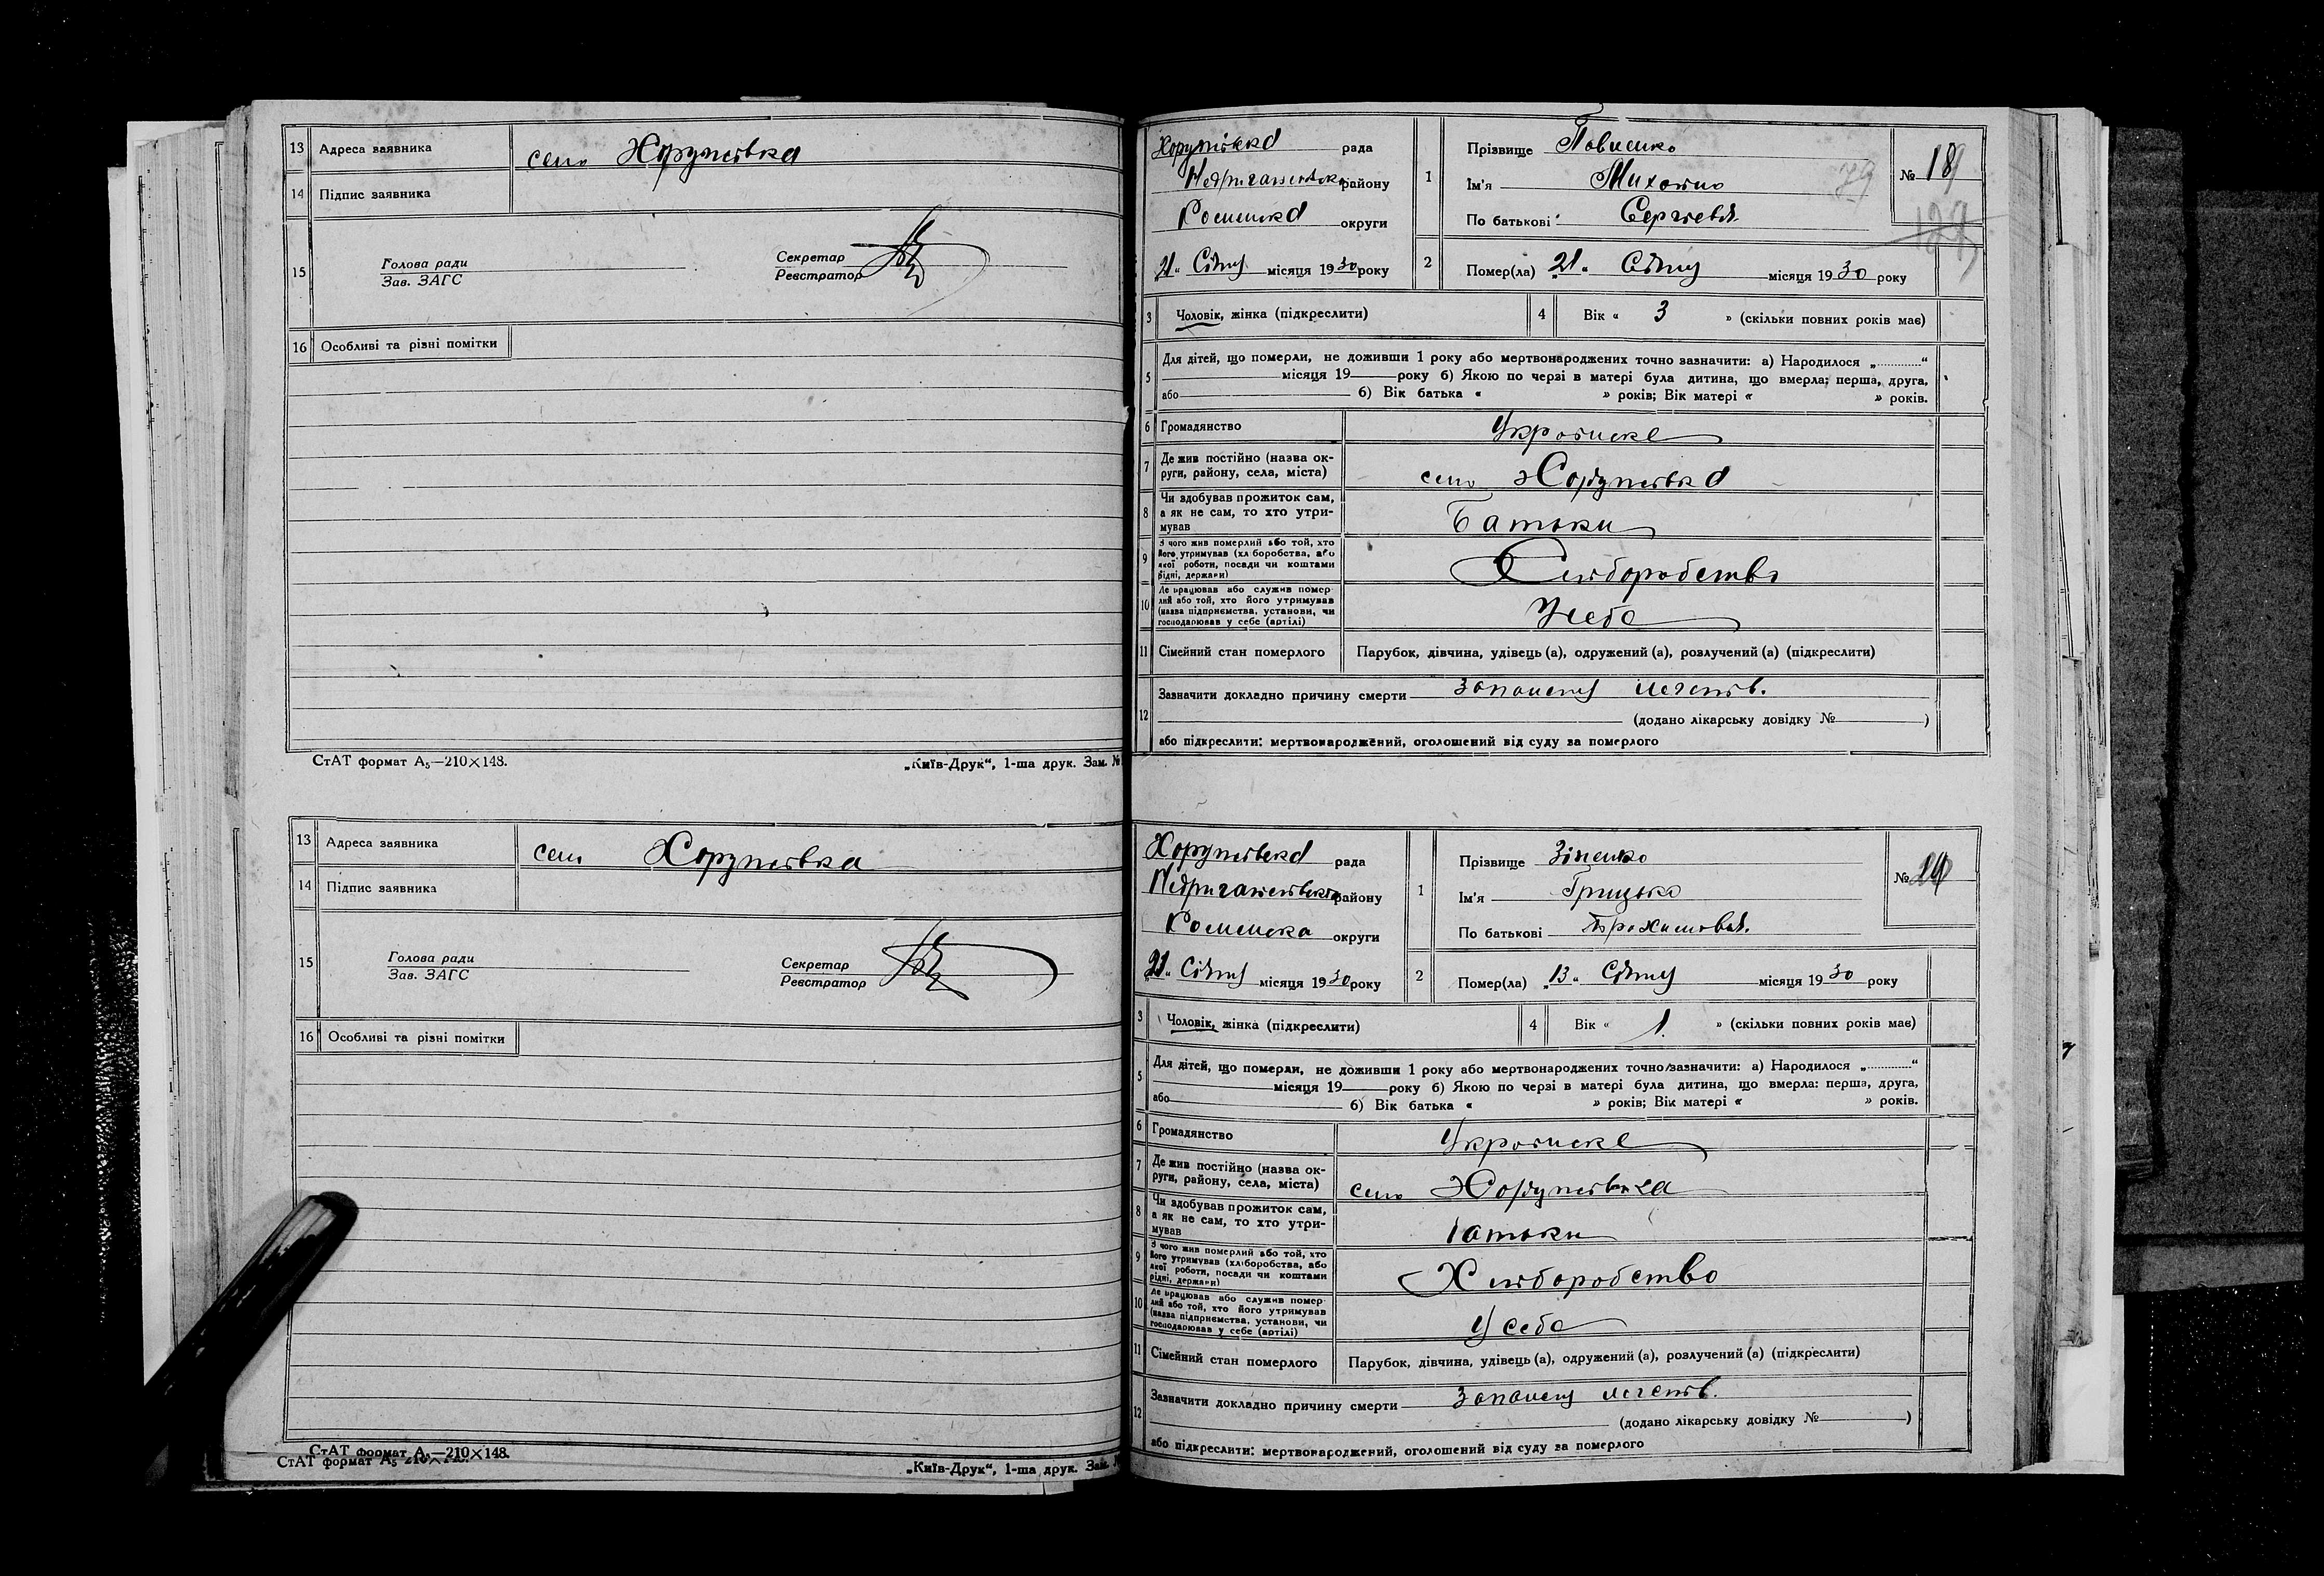 13 Адреса заявника село Хоружівка
14 Підпис заявника
15 Голова ради
Зав. ЗАГС
Секретар
Реєстратор
16 Особливі та різні помітки
СтАТ формат А5—210×148.
„Київ-Друк“, 1-ша друк. Зам. №
13 Адреса заявника село Хоружівка
14 Підпис заявника
15 Голова ради
Зав. ЗАГС
Секретар
Реєстратор
16 Особливі та різні помітки
СтАТ формат А5—210×148.
СтАТ формат А5
„Київ-Друк“, 1-ша друк. Зам. №
Хоружівська рада
Недригайлівська району
Роменська округи
21 „ Січня місяця 1930 року
1 Прізвище
Ім'я Михайло
По батькові Сергієв.
№ 18
2 Помер(ла) „21“ Січня місяця 1930 року
3 Чоловік, жінка (підкреслити)
4 Вік « 3 » (скільки повних років має)
5 Для дітей, що померли, не доживши 1 року або мертвонароджених точно зазначити: а) Народилося „............“
місяця 19 року б) Якою по черзі в матері була дитина, що вмерла: перша, друга,
або б) Вік батька « » років; Вік матері « » років.
6 Громадянство Українське
7 Де жив постійно (назва ок-
руги, району, села, міста) село Хоружівка
8 Чи здобував прожиток сам,
а як не сам, то хто утри-
мував Батьки
9 З чого жив померлий або той, хто
його утримував (хліборобства, або
якої роботи, посади чи коштами
рідні, держави) Хліборобство
10 Де працював або служив помер-
лий або той, хто його утримував
(назва підприємства, установи, чи
господарював у себе (артілі) У себе
11 Сімейний стан померлого Парубок, дівчина, удівець (а), одружений (а), розлучений (а) (підкреслити)
12 Зазначити докладно причину смерти запалення легенів.
(додано лікарську довідку № )
або підкреслити: мертвонароджений, оголошений від суду за померлого
Хоружівська рада
Недригайлівська району
Роменська округи
21 „ Січня місяця 1930 року
1 Прізвище Зіненко
Ім'я Грицько
По батькові
№ 19
2 Помер(ла) „13“ Січня місяця 1930 року
3 Чоловік, жінка (підкреслити)
4 Вік « 1 » (скільки повних років має)
5 Для дітей, що померли, не доживши 1 року або мертвонароджених точно зазначити: а) Народилося „............“
місяця 19 року б) Якою по черзі в матері була дитина, що вмерла: перша, друга,
або б) Вік батька « » років; Вік матері « » років.
6 Громадянство Українське
7 Де жив постійно (назва ок-
руги, району, села, міста) село Хоружівка
8 Чи здобував прожиток сам,
а як не сам, то хто утри-
мував Батьки
9 З чого жив померлий або той, хто
його утримував (хліборобства, або
якої роботи, посади чи коштами
рідні, держави) Хліборобство
10 Де працював або служив помер-
лий або той, хто його утримував
(назва підприємства, установи, чи
господарював у себе (артілі) У себе
11 Сімейний стан померлого Парубок, дівчина, удівець (а), одружений (а), розлучений (а) (підкреслити)
12 Зазначити докладно причину смерти запалення легенів.
(додано лікарську довідку № )
або підкреслити: мертвонароджений, оголошений від суду за померлого